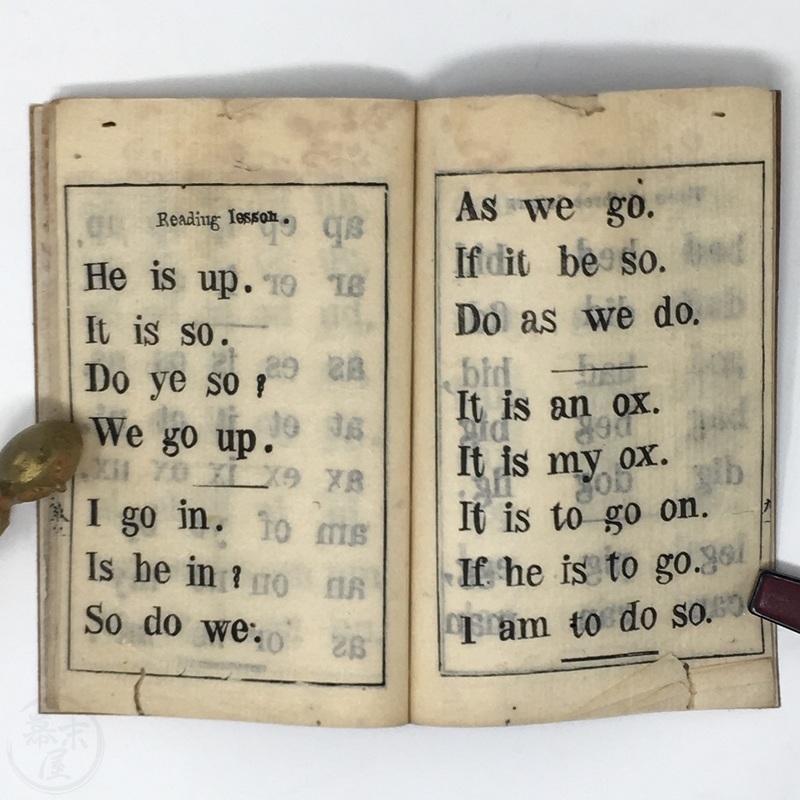 Reading lesson.
He is up.
It is so.
Do ye so?
We go up.
I go in.
Is he in?
So do we.
As we go.
If it be so.
Do as we do.
It is an ox.
It is my ox.
It is to go on.
If he is to go.
I am to do so.
幕末屋